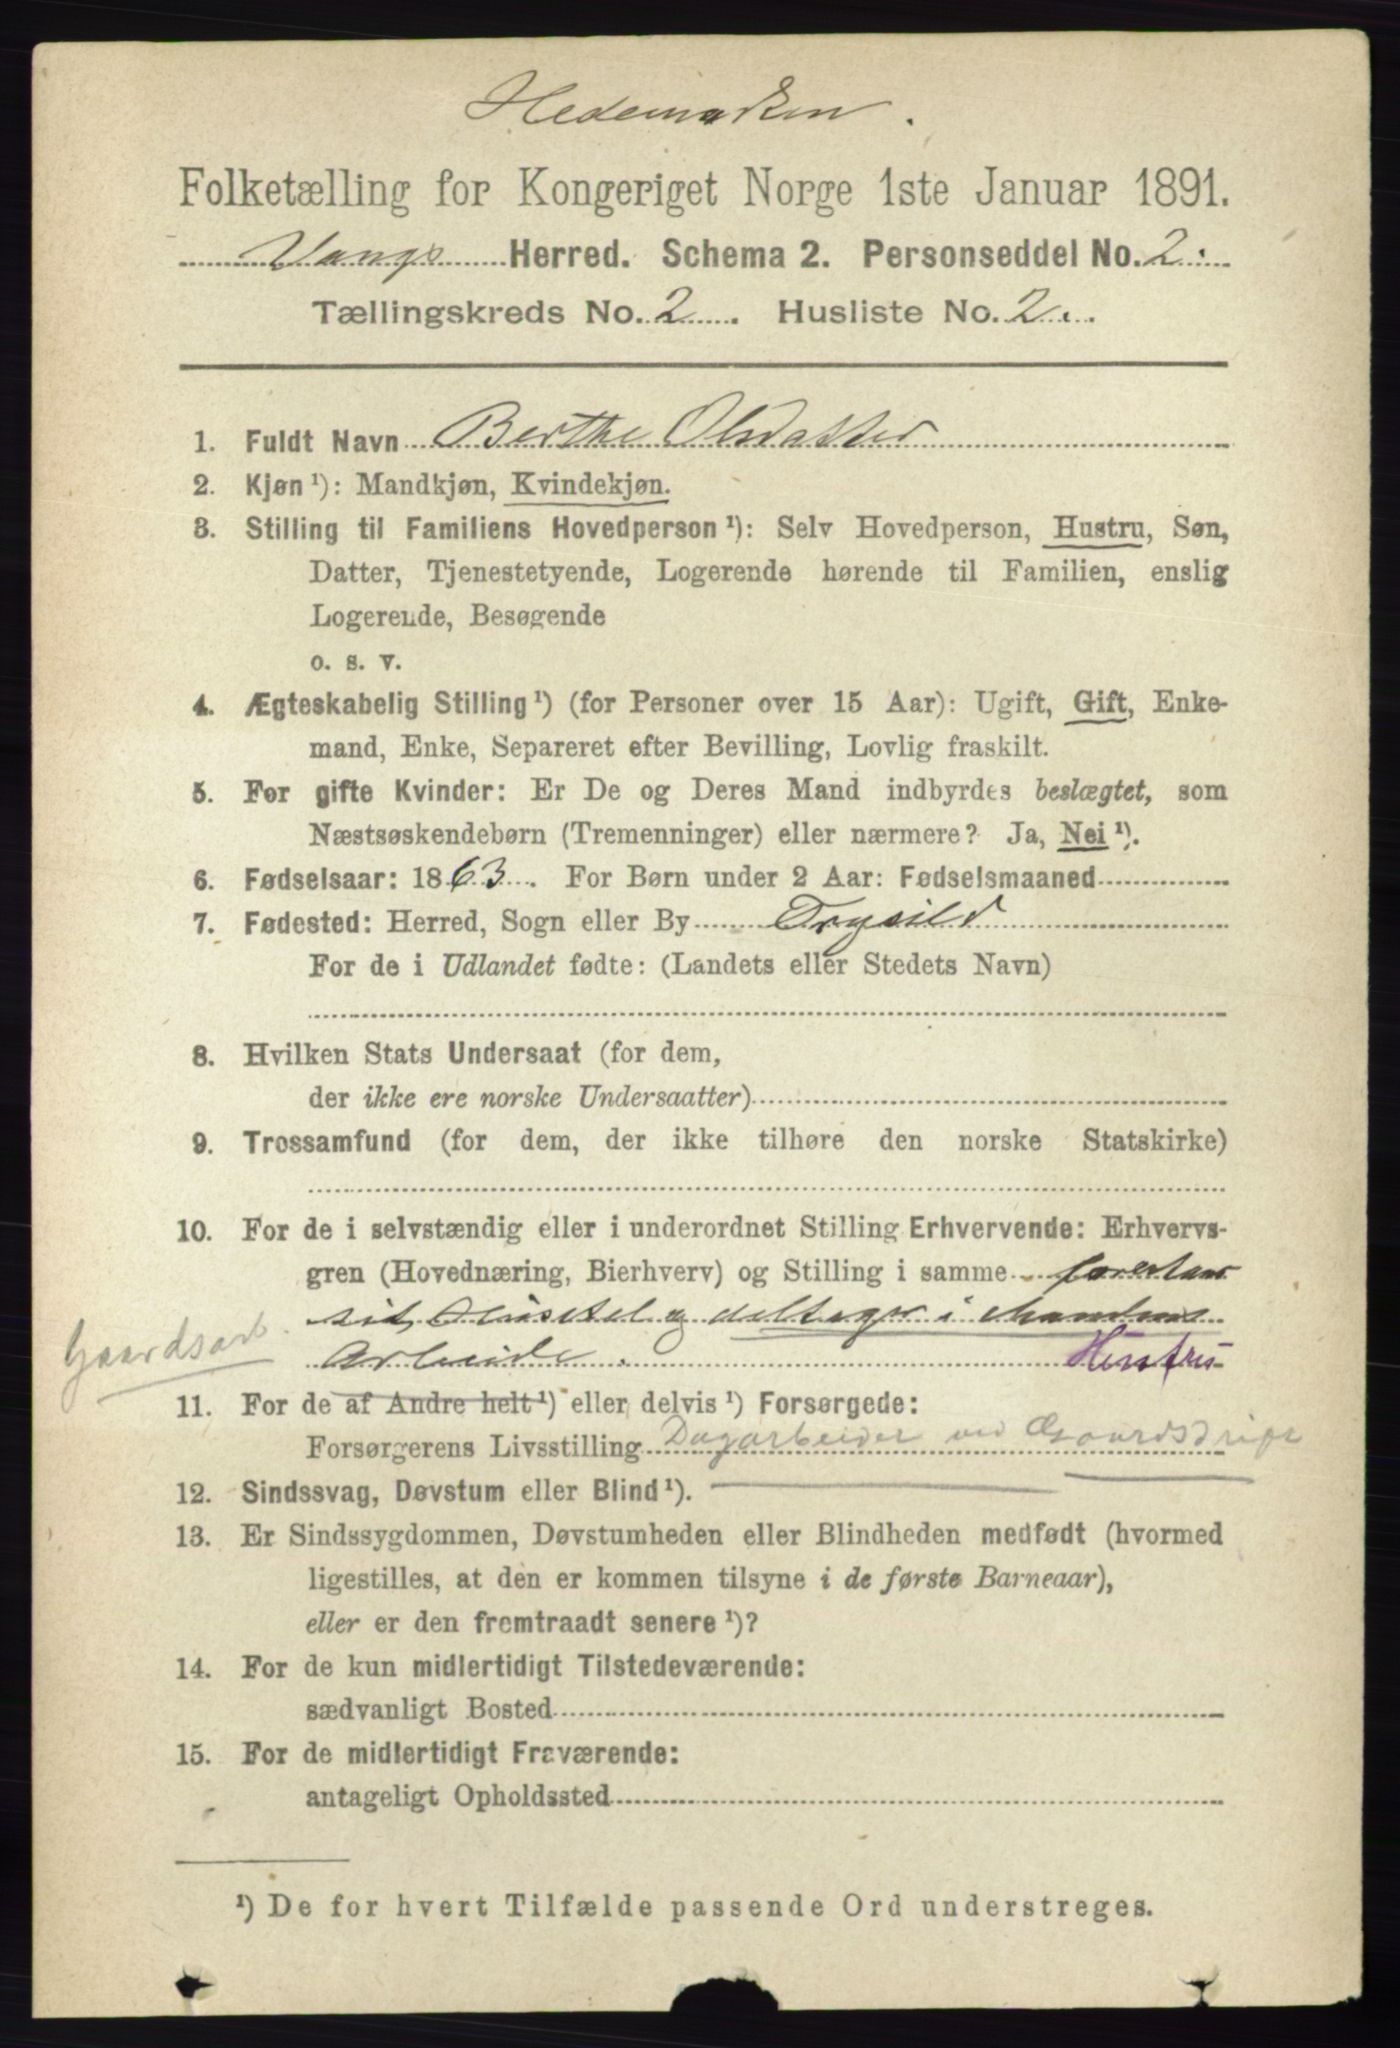 Hedemarken.
Folketælling for Kongeriget Norge 1ste Januar 1891.
Vangs Herred. Schema 2. Personseddel No. 2.
Tællingskreds No. 2. Husliste No. 2.
1. Fuldt Navn Berthe Olsdatter
2. Kjøn ¹): Mandkjøn, Kvindekjøn.
3. Stilling til Familiens Hovedperson ¹): Selv Hovedperson, Hustru, Søn,
Datter, Tjenestetyende, Logerende hørende til Familien, enslig
Logerende, Besøgende
o. s. v.
4. Ægteskabelig Stilling ¹) (for Personer over 15 Aar): Ugift, Gift, Enke-
mand, Enke, Separeret efter Bevilling, Lovlig fraskilt.
5. For gifte Kvinder: Er De og Deres Mand indbyrdes beslægtet, som
Næstsøskendebørn (Tremenninger) eller nærmere? Ja, Nei ¹).
6. Fødselsaar: 1863. For Børn under 2 Aar: Fødselsmaaned
7. Fødested: Herred, Sogn eller By Trysild
For de i Udlandet fødte: (Landets eller Stedets Navn)
8. Hvilken Stats Undersaat (for dem,
der ikke ere norske Undersaatter)
9. Trossamfund (for dem, der ikke tilhøre den norske Statskirke)
10. For de i selvstændig eller i underordnet Stilling Erhvervende: Erhvervs-
gren (Hovednæring, Bierhverv) og Stilling i samme forestaar
sit Husstel og deltager i Mandens
Gaardsarb.
Arbeide. Hustru
11. For de af Andre helt ¹) eller delvis ¹) Forsørgede:
Forsørgerens Livsstilling Dagarbeider ved Gaardsdrift
12. Sindssvag, Døvstum eller Blind ¹).
13. Er Sindssygdommen, Døvstumheden eller Blindheden medfødt (hvormed
ligestilles, at den er kommen tilsyne i de første Barneaar),
eller er den fremtraadt senere ¹)?
14. For de kun midlertidigt Tilstedeværende:
sædvanligt Bosted
15. For de midlertidigt Fraværende:
antageligt Opholdssted
¹) De for hvert Tilfælde passende Ord understreges.